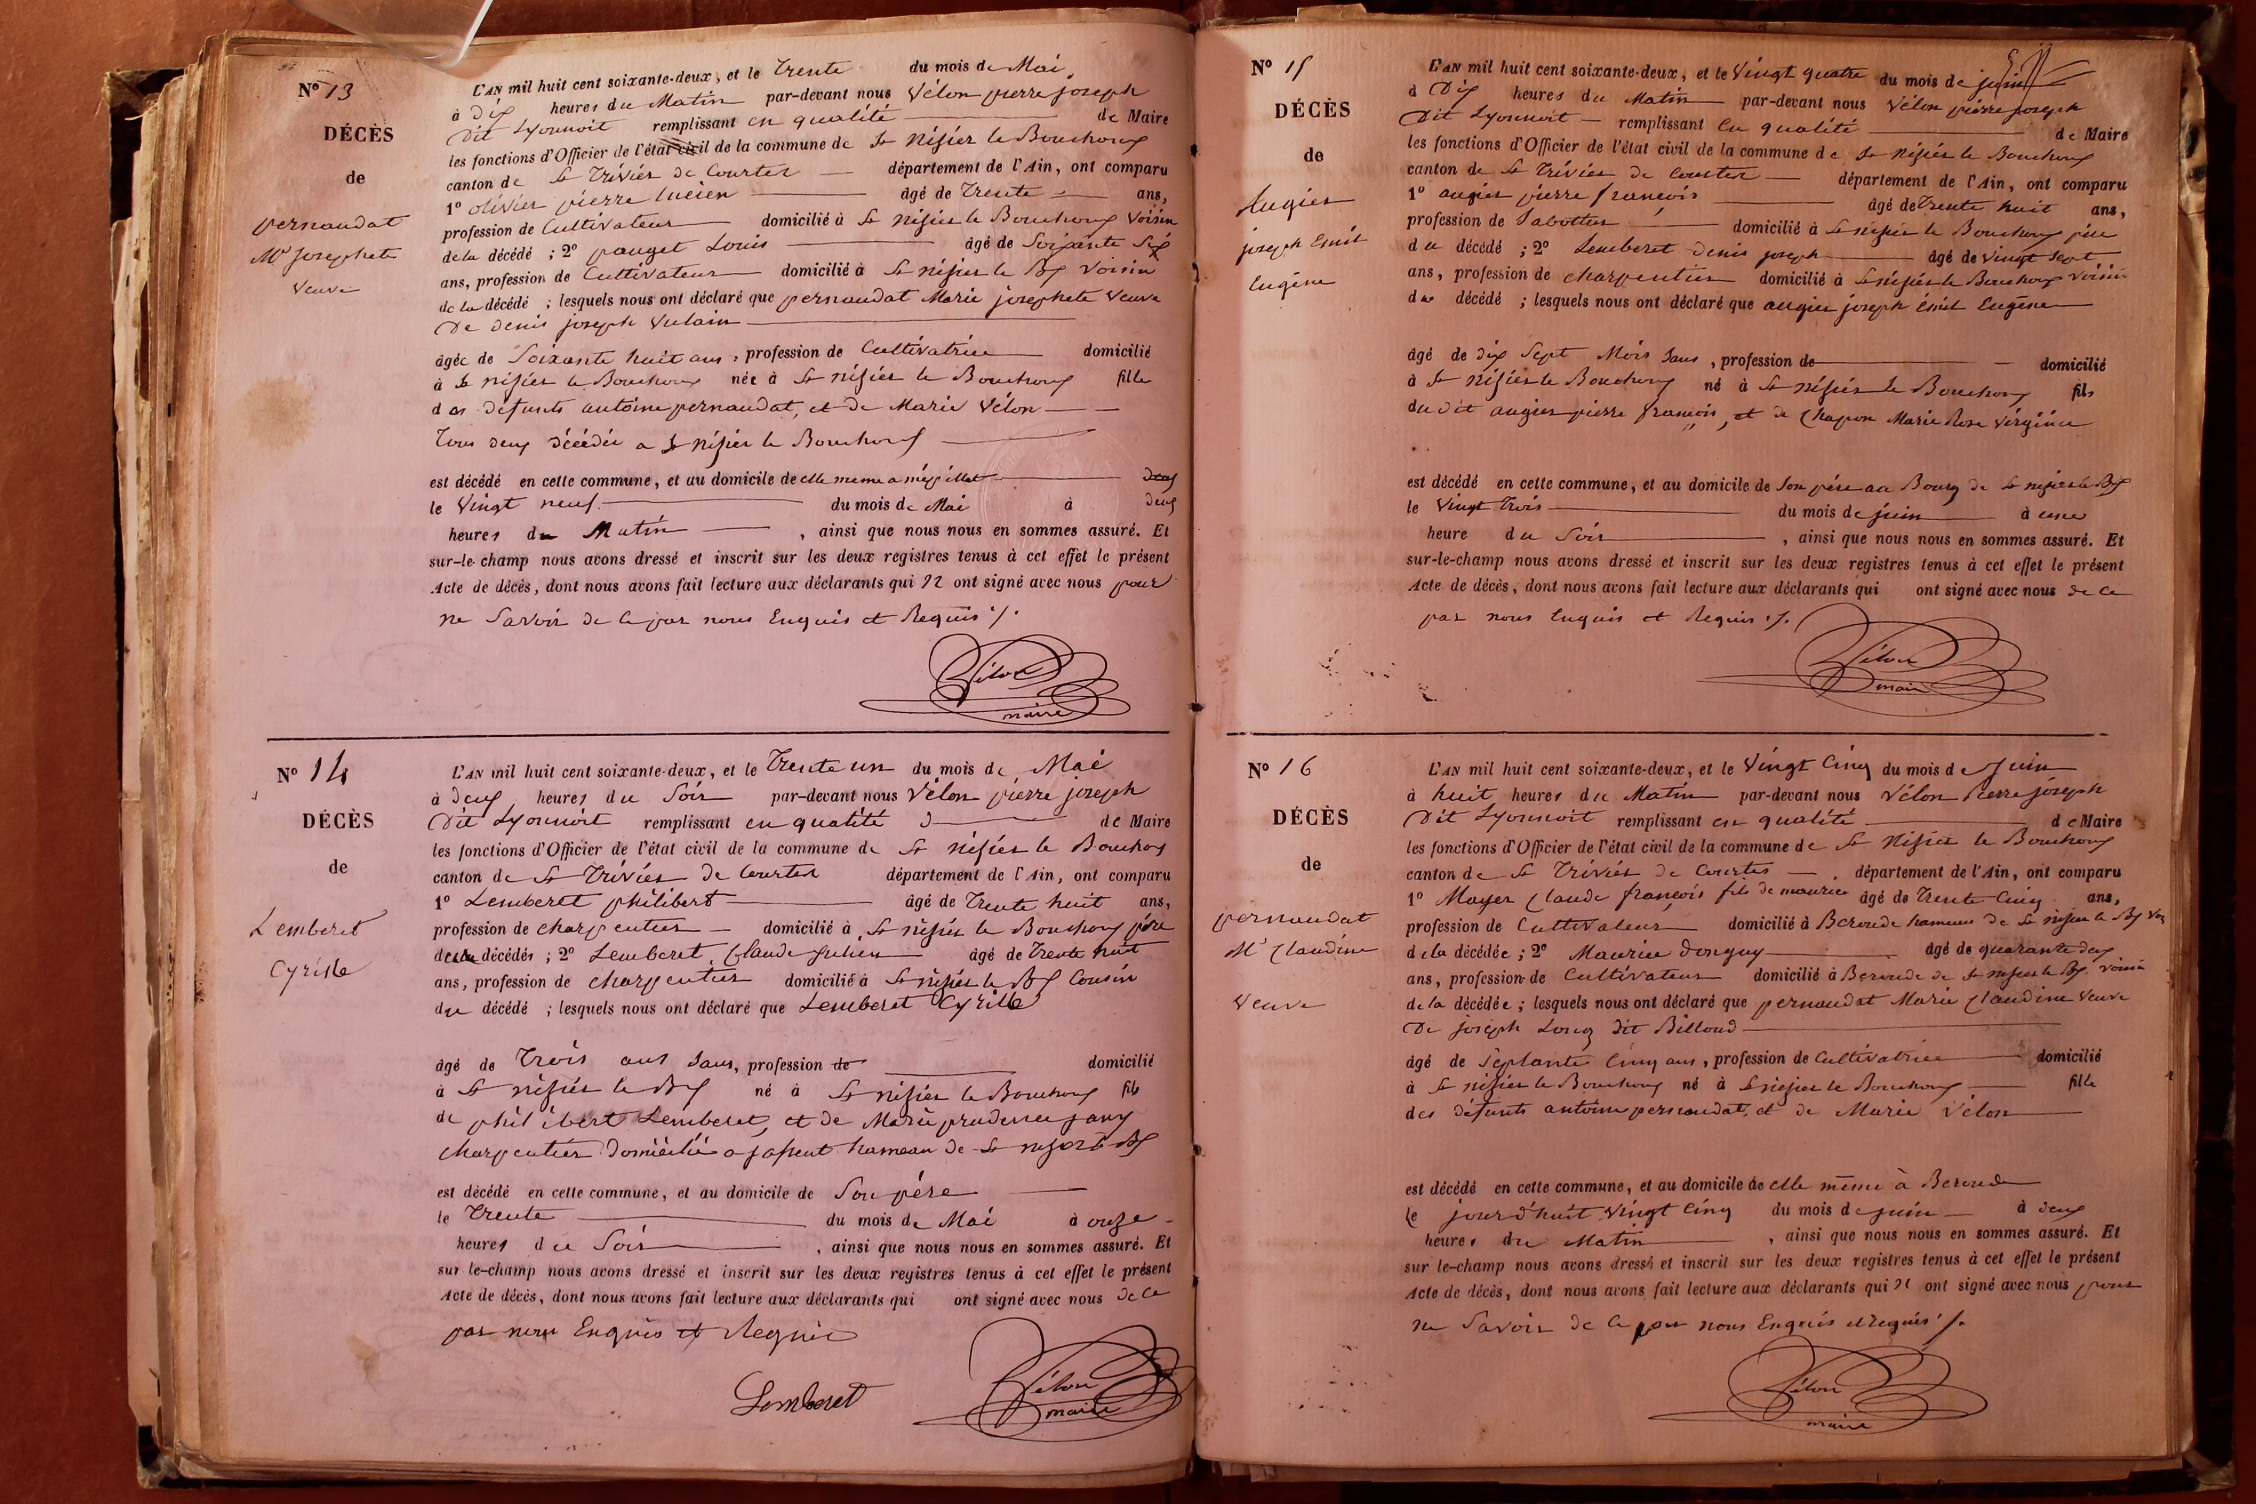 N° 13
DÉCÈS
de
pernaudat
Mie Josephete
Veuve
L'AN mil huit cent soixante-deux, et le Trente du mois de Mai
à Dix heures du Matin par-devant nous Vélon pierre joseph
Dit Lyonnoit remplissant en qualité de Maire
les fonctions d'Officier de l'état civil de la commune de St Nisier le Bouchoux
canton de St Trivier de Courtes département de l'Ain, ont comparu
1° olivier pierre lucien âgé de Trente ans,
profession de Cultivateur domicilié à St Nisier le Bouchoux Voisin
de la décédé ; 2° pauget Louis âgé de Soixante Six
ans, profession de Cultivateur domicilié à St nisier le Bx Voisin
de la décédé ; lesquels nous ont déclaré que pernaudat Marie josephete Veuve
De denis joseph Vulain
âgée de Soixante huit ans, profession de Cultivatrice domicilié
à St nisier le Bouchoux née à St nisier le Bouchoux fille
des défunts antoine pernaudat, et de Marie Vélon
Tous deux décédés a St Nisier le Bouchoux
est décédé en cette commune, et au domicile de elle meme a deux
le Vingt neuf du mois de Mai à deux
heures du Matin , ainsi que nous nous en sommes assuré. Et
sur-le-champ nous avons dressé et inscrit sur les deux registres tenus à cet effet le présent
Acte de décès, dont nous avons fait lecture aux déclarants qui n ont signé avec nous pour
ne Savoir de ce par nous Enquis et Requis ./.
Vélon
maire
N° 14
DÉCÈS
de
Lemberet
Cyrille
L'AN mil huit cent soixante-deux, et le Trente un du mois de Mai
à deux heures du Soir par-devant nous Vélon pierre joseph
Dit Lyonnoit remplissant en qualité de Maire
les fonctions d'Officier de l'état civil de la commune de St Nisier le Bouchox
canton de St Trivier de Courtes département de l'Ain, ont comparu
1° Lemberet philibert âgé de Trente huit ans,
profession de charpentier domicilié à St Nisier le Bouchoux père
de la décédés ; 2° Lemberet Claude julien âgé de Trente huit
ans, profession de charpentier domicilié à St nisier le Bx Cousin
du décédé ; lesquels nous ont déclaré que Lemberet Cyrille
âgé de Trois ans Sans, profession de domicilié
à St nisier le Bx né à St nisier le Bouchoux fils
de philibert Lemberet, et de Marie prudence
charpentier Domicilié a hameau de St le Bx
est décédé en cette commune, et au domicile de Son père
le Trente du mois de Mai à onze
heures du Soir , ainsi que nous nous en sommes assuré. Et
sur le-champ nous avons dressé et inscrit sur les deux registres tenus à cet effet le présent
Acte de décès, dont nous avons fait lecture aux déclarants qui ont signé avec nous de ce
par nous Enquis et Requis
Lemberet
Vélon
maire
N° 15
DÉCÈS
de
Augier
joseph Emil
Eugéne
L'AN mil huit cent soixante-deux, et le Vingt quatre du mois de juin
à Dix heures du Matin par-devant nous Vélon pierre joseph
Dit Lyonnoit remplissant en qualité de Maire
les fonctions d'Officier de l'état civil de la commune de St Nisier le Bouchoux
canton de St Trivier de Courtes département de l'Ain, ont comparu
1° augier pierre françois âgé de Trente huit ans,
profession de Sabottier domicilié à St nisier le Bouchoux père
du décédé ; 2° Lemberet denis joseph âgé de Vingt Sept
ans, profession de charpentier domicilié à St nisier le Bouchoux Voisin
du décédé ; lesquels nous ont déclaré que augier joseph Emil Eugéne
âgé de dix Sept Mois Sans, profession de domicilié
à St Nisier le Bouchoux né à St Nisier le Bouchoux fils
du dit augier pierre françois, et de Chapon Marie Rose Virginie
est décédé en cette commune, et au domicile de Son père au Bourg de St nisier le Bx
le Vingt Trois du mois de juin à une
heure du Soir , ainsi que nous nous en sommes assuré. Et
sur-le-champ nous avons dressé et inscrit sur les deux registres tenus à cet effet le présent
Acte de décès, dont nous avons fait lecture aux déclarants qui ont signé avec nous de ce
par nous Enquis et Requis ./.
Vélon
maire
N° 16
DÉCÈS
de
pernaudat
Mie Claudine
Veuve
L'AN mil huit cent soixante-deux, et le Vingt Cinq du mois de Juin
à huit heures du Matin par-devant nous Vélon Pierre joséph
Dit Lyonnoit remplissant en qualité de Maire
les fonctions d'Officier de l'état civil de la commune de St Nisier le Bouchoux
canton de St Trivier de Courtes département de l'Ain, ont comparu
1° Moyer Claude françois fils de maurice âgé de Trente Cinq ans,
profession de Cultivateur domicilié à Beroude hameau de St nisier le Bx
de la décédée ; 2° Maurice Donguy âgé de quarante deux
ans, profession de Cultivateur domicilié à Beroude de St nisier le Bx Voisin
de la décédée ; lesquels nous ont déclaré que pernaudat Marie Claudine Veuve
De joséph Loug dit Billoud
âgé de Septante Cinq ans, profession de Cultivatrice domicilié
à St nisier le Bouchoux né à St nisier le Bouchoux fille
des défunts antoine pernaudat, et de Marie Vélon
est décédé en cette commune, et au domicile de elle même à Beroude
le jourd'huit Vingt Cinq du mois de juin à deux
heures du Matin , ainsi que nous nous en sommes assuré. Et
sur le-champ nous avons dressé et inscrit sur les deux registres tenus à cet effet le présent
Acte de décès, dont nous avons fait lecture aux déclarants qui n ont signé avec nous pour
ne Savoir de ce par nous Enquis et Requis ./.
Vélon
maire